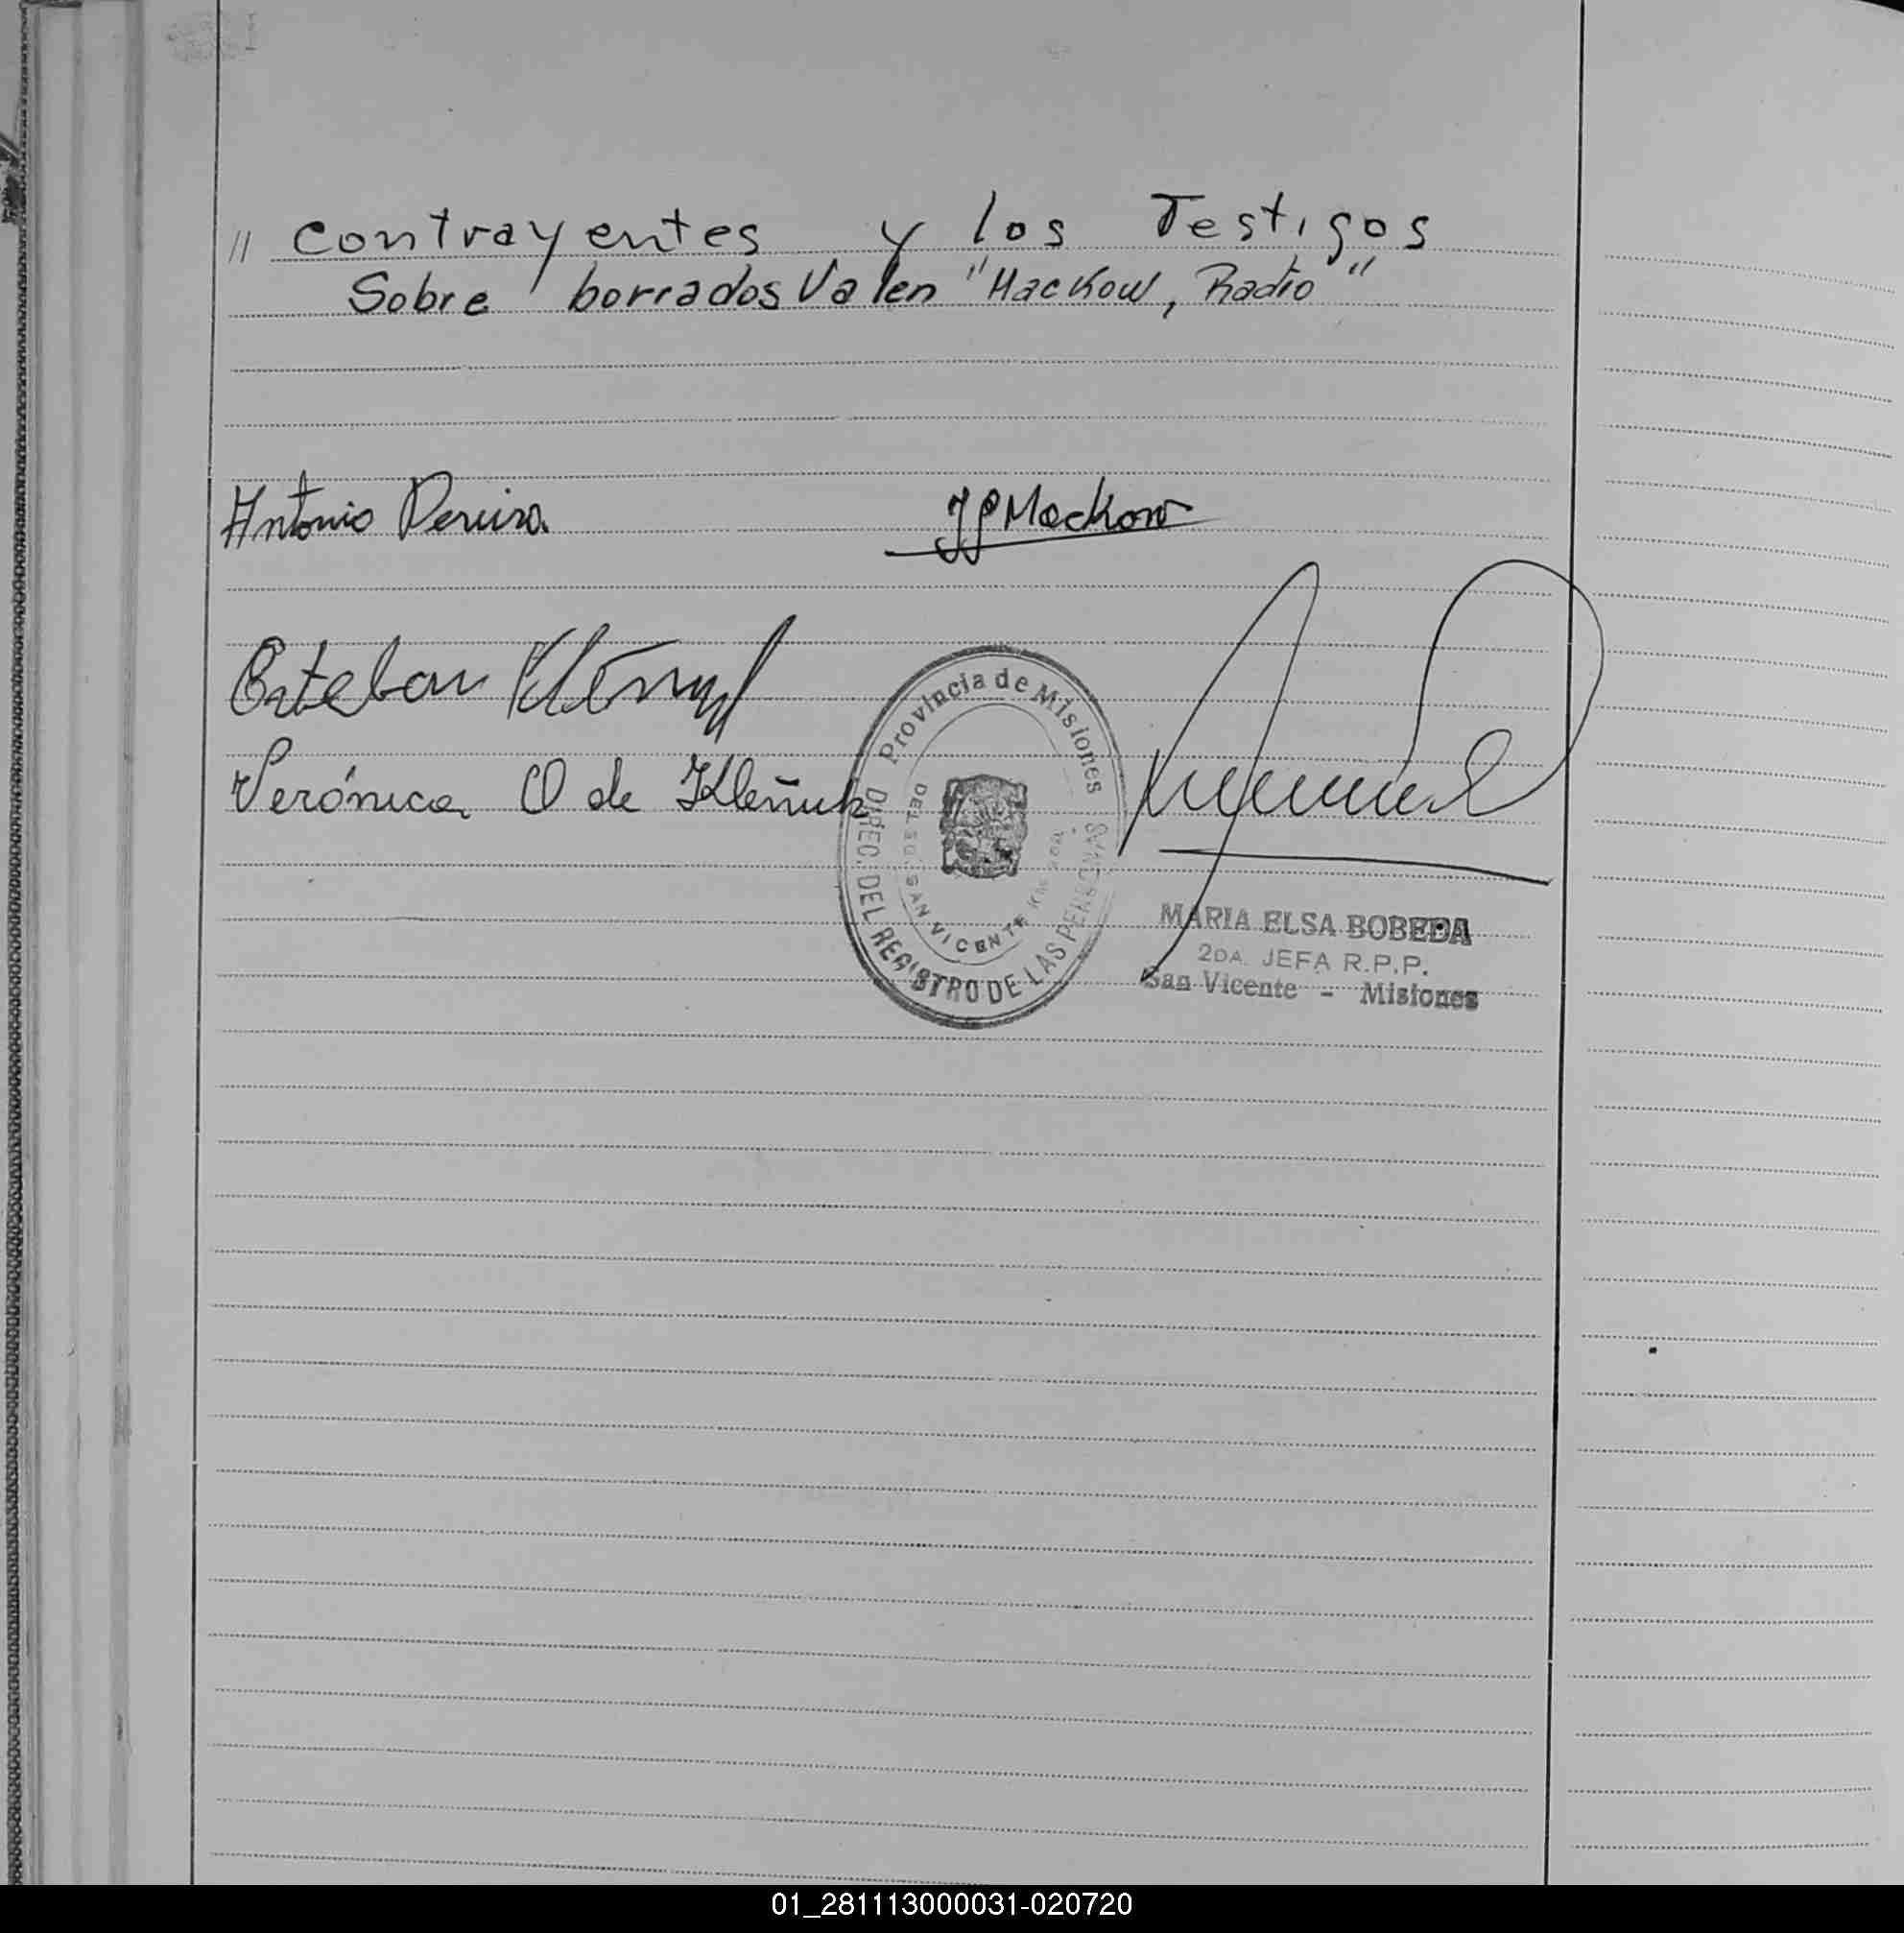 // Contrayentes y los Testigos
Sobre borrados Valen "Mackow, Radio"
Antonio Pereira
JPMackow
Esteban
Verónica O de Kleñuk
Provincia de Misiones
DIREC. DEL REGISTRO DE LAS PERSONAS
SAN VICENTE
MARIA ELSA BOBEDA
2DA. JEFA R.P.P.
San Vicente - Misiones
01_281113000031-020720